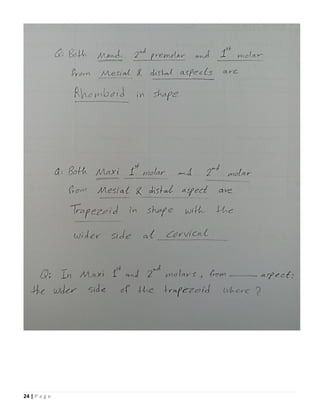 Q: Both Mand. 2nd premolar and 1st molar
from Mesial & distal aspects are
Rhomboid in shape
Q: Both Maxi 1st molar and 2nd molar
from Mesial & distal aspect are
Trapezoid in shape with the
wider side at cervical
Q: In Maxi 1st and 2nd molars, from ______ aspect:
the wider side of the trapezoid where?
24 | Page